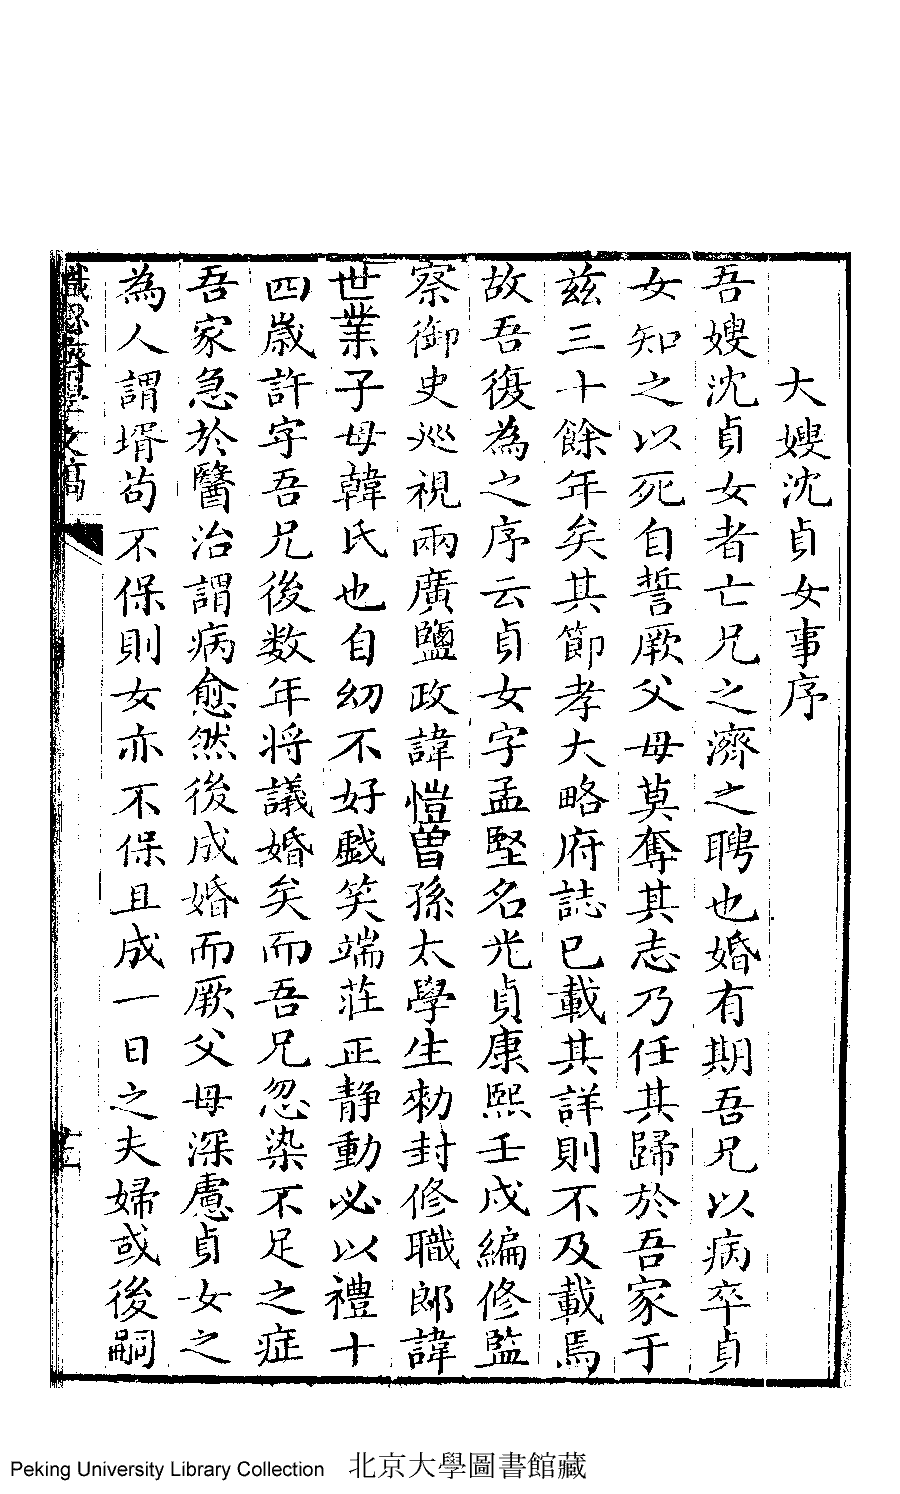 大嫂沈貞女事序
吾嫂沈貞女者亡兄之濟之聘也婚有期吾兄以病卒貞
女知之以死自誓厥父母莫奪其志乃任其歸於吾家于
兹三十餘年矣其節孝大略府誌已載其詳則不及載焉
故吾復為之序云貞女字孟堅名光貞康熙壬戌編修監
察御史巡視兩廣鹽政諱愷曽孫太學生勑封修職郎諱
世業子母韓氏也自幼不好戯笑端莊正静動必以禮十
四歲許字吾兄後数年将議婚矣而吾兄忽染不足之症
吾家急於醫治謂病愈然後成婚而厥父母深慮貞女之
為人謂壻苟不保則女亦不保且成一日之夫婦或後嗣
文稿
Peking University Library Collection 北京大學圖書館藏